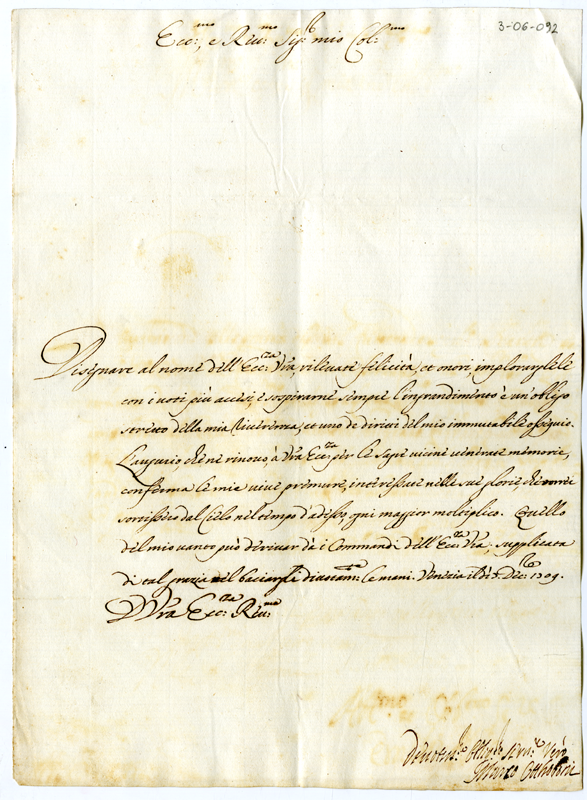 3-06-092
Ecc:mo, e Reu:mo Sig:r mio Col:mo
Disegnare al nome dell'Ecc:za Vra, rilevate felicità, et onori, implorarglele
con i voti più accesi, e sospirarne sempre l'ingrandimento è un'obligo
stretto della mia riverenza, et uno de dirivi del mio immutabile ossequio.
L'augurio, che ne rinovo, à Vra Ecc:za per le sagre vicine venerate memorie,
conferma le mie vive premure, interessate nelle sue glorie, che vorrei
sortissero dal Cielo nel tempo d'adesso, ogni maggior moltiplico. Quello
del mio vanto può derivar dà i Commandi dell'Ecc:za Vra, supplicata
di tal grazia nel baciargli divotam:te le mani. Venezia li dì 7. Dec:bre 1709.
D Vra Ecc:za Reu:ma
Devotis:o Oblig:o Seru:e Vero
Marco Otthoboni